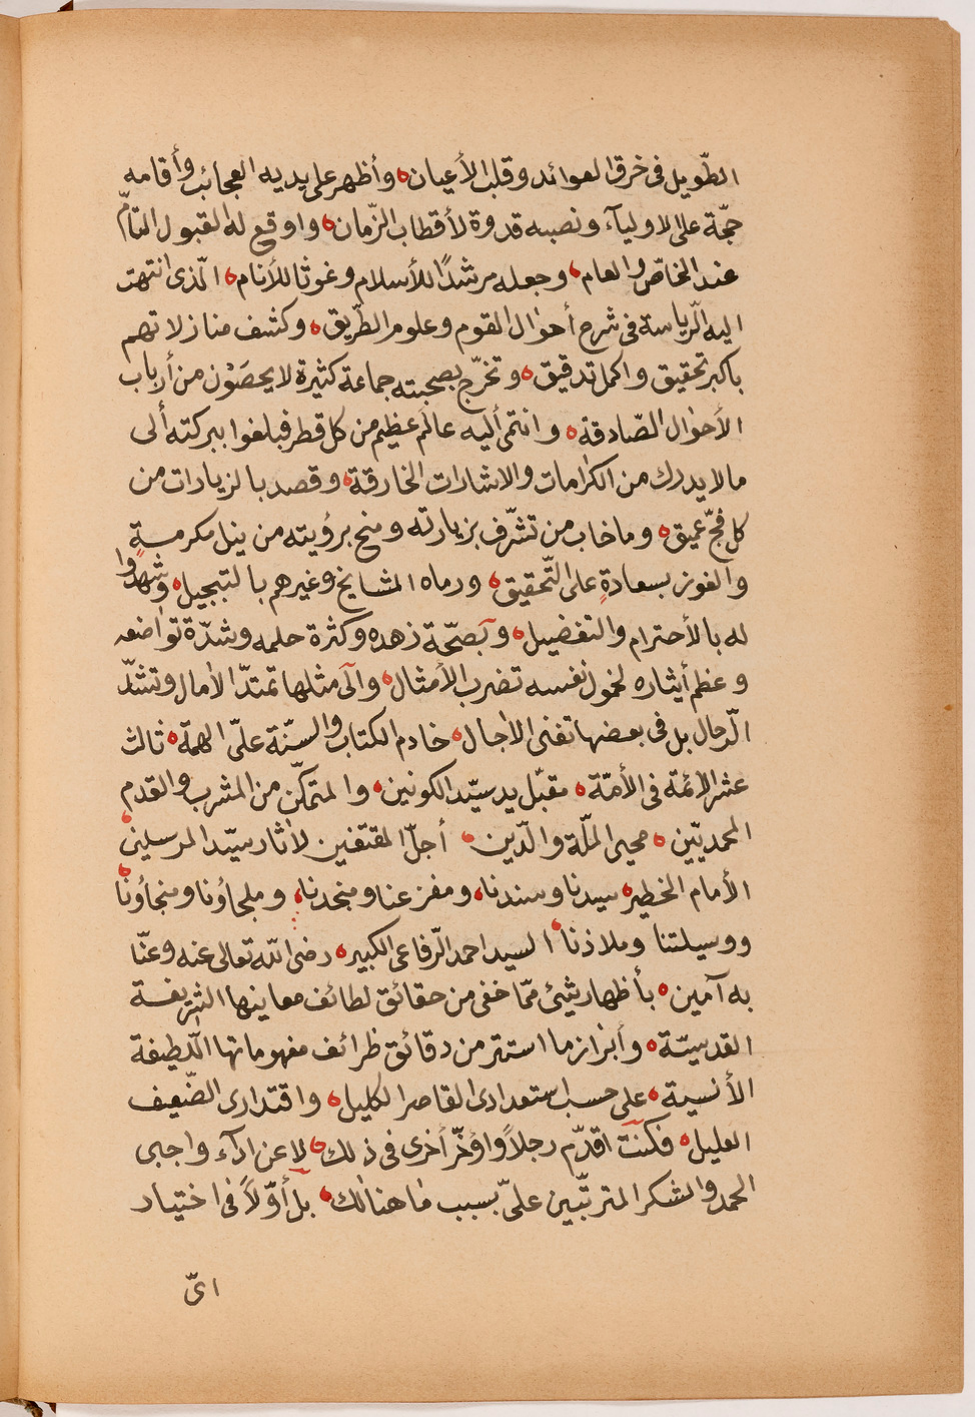 الطّويل فى خرق العوائد وقلب الأعيان ه وأظهر على يديه العجائب وأقامه
حجّة على الاوليآء ونصبه قدوة لأقطاب الزّمان ه واوقع له القبول التامّ
عند الخاصّ والعام ه وجعله مرشدًا للأسلام وغوثا للأنام ه الّذى انتهت
اليه الرّياسة فى شرح أحوال القوم وعلوم الطّريق ه وكشف منازلاتهم
باكبر تحقيق واكمل تدقيق ه وتخرّج بصحبته جماعة كثيرة لا يحصَوْن من أرباب
الأحوال الصّادقة ه وانتمى أليه عالَم عظيم من كل قطر فبلغوا ببركته ألى
مالا يدرك من الكرامات والاشارات الخارقة ه وقصد بالزيارات من
كل فجّ عميق ه وما خاب من تشرّف بزيارته ومنح برؤيته من ينل مكرمةٍ
والفوز بسعادةٍ على التّحقيق ه ورماه المشايخ وغيرهم بالتبجيل ه وشهدوا
له بالأحترام والتفضيل ه وبصحّة زهده وكثرة حلمه وشدّة تواضعه
وعظم أيثاره لخمول نفسه تضرب الأمثال ه وآلى مثلها تمتدّ الاٰمال وتشدّ
الرّحال بل فى بعضها تفنى الاٰجال ه خادم الكتاب والسنّة علىّ الهمّة ه ثالث
عشر الأئمّة فى الأمّة ه مقبّل يد سيّد الكونين ه والمتمكّن من المشرب والقدم
المحمديّين ه محيى الملّة والدّين ه أجلّ المقتفين لاٰثار سيّد المرسلين ه
الأمام الخطير ه سيدنا وسندنا ه ومفزعنا ومنجدنا ه وملجاؤنا ومنجاؤنا ه
ووسيلتنا وملاذنا ه السيد احمد الرّفاعى الكبير ه رضى الله تعالى عنه وعنّا
به آمين ه بأظهار شيئ ممّا خفى من حقائق لطائف معاينها الشريفة
القدسيّة ه وأبراز ما استتر من دقائق ظرائف مفهوماتها اللّطيفة
الأنسية ه على حسب استعدادى القاصر الكليل ه واقتدارى الضّعيف
العليل ه فكنت اقدّم رجلاً واؤخّر أخرى فى ذلك ه لا عن ادآء واجبى
الحمد والشكر المترتّبين علىّ بسبب ما هنالك ه بل أوّلاً فى اختيار
اىّ